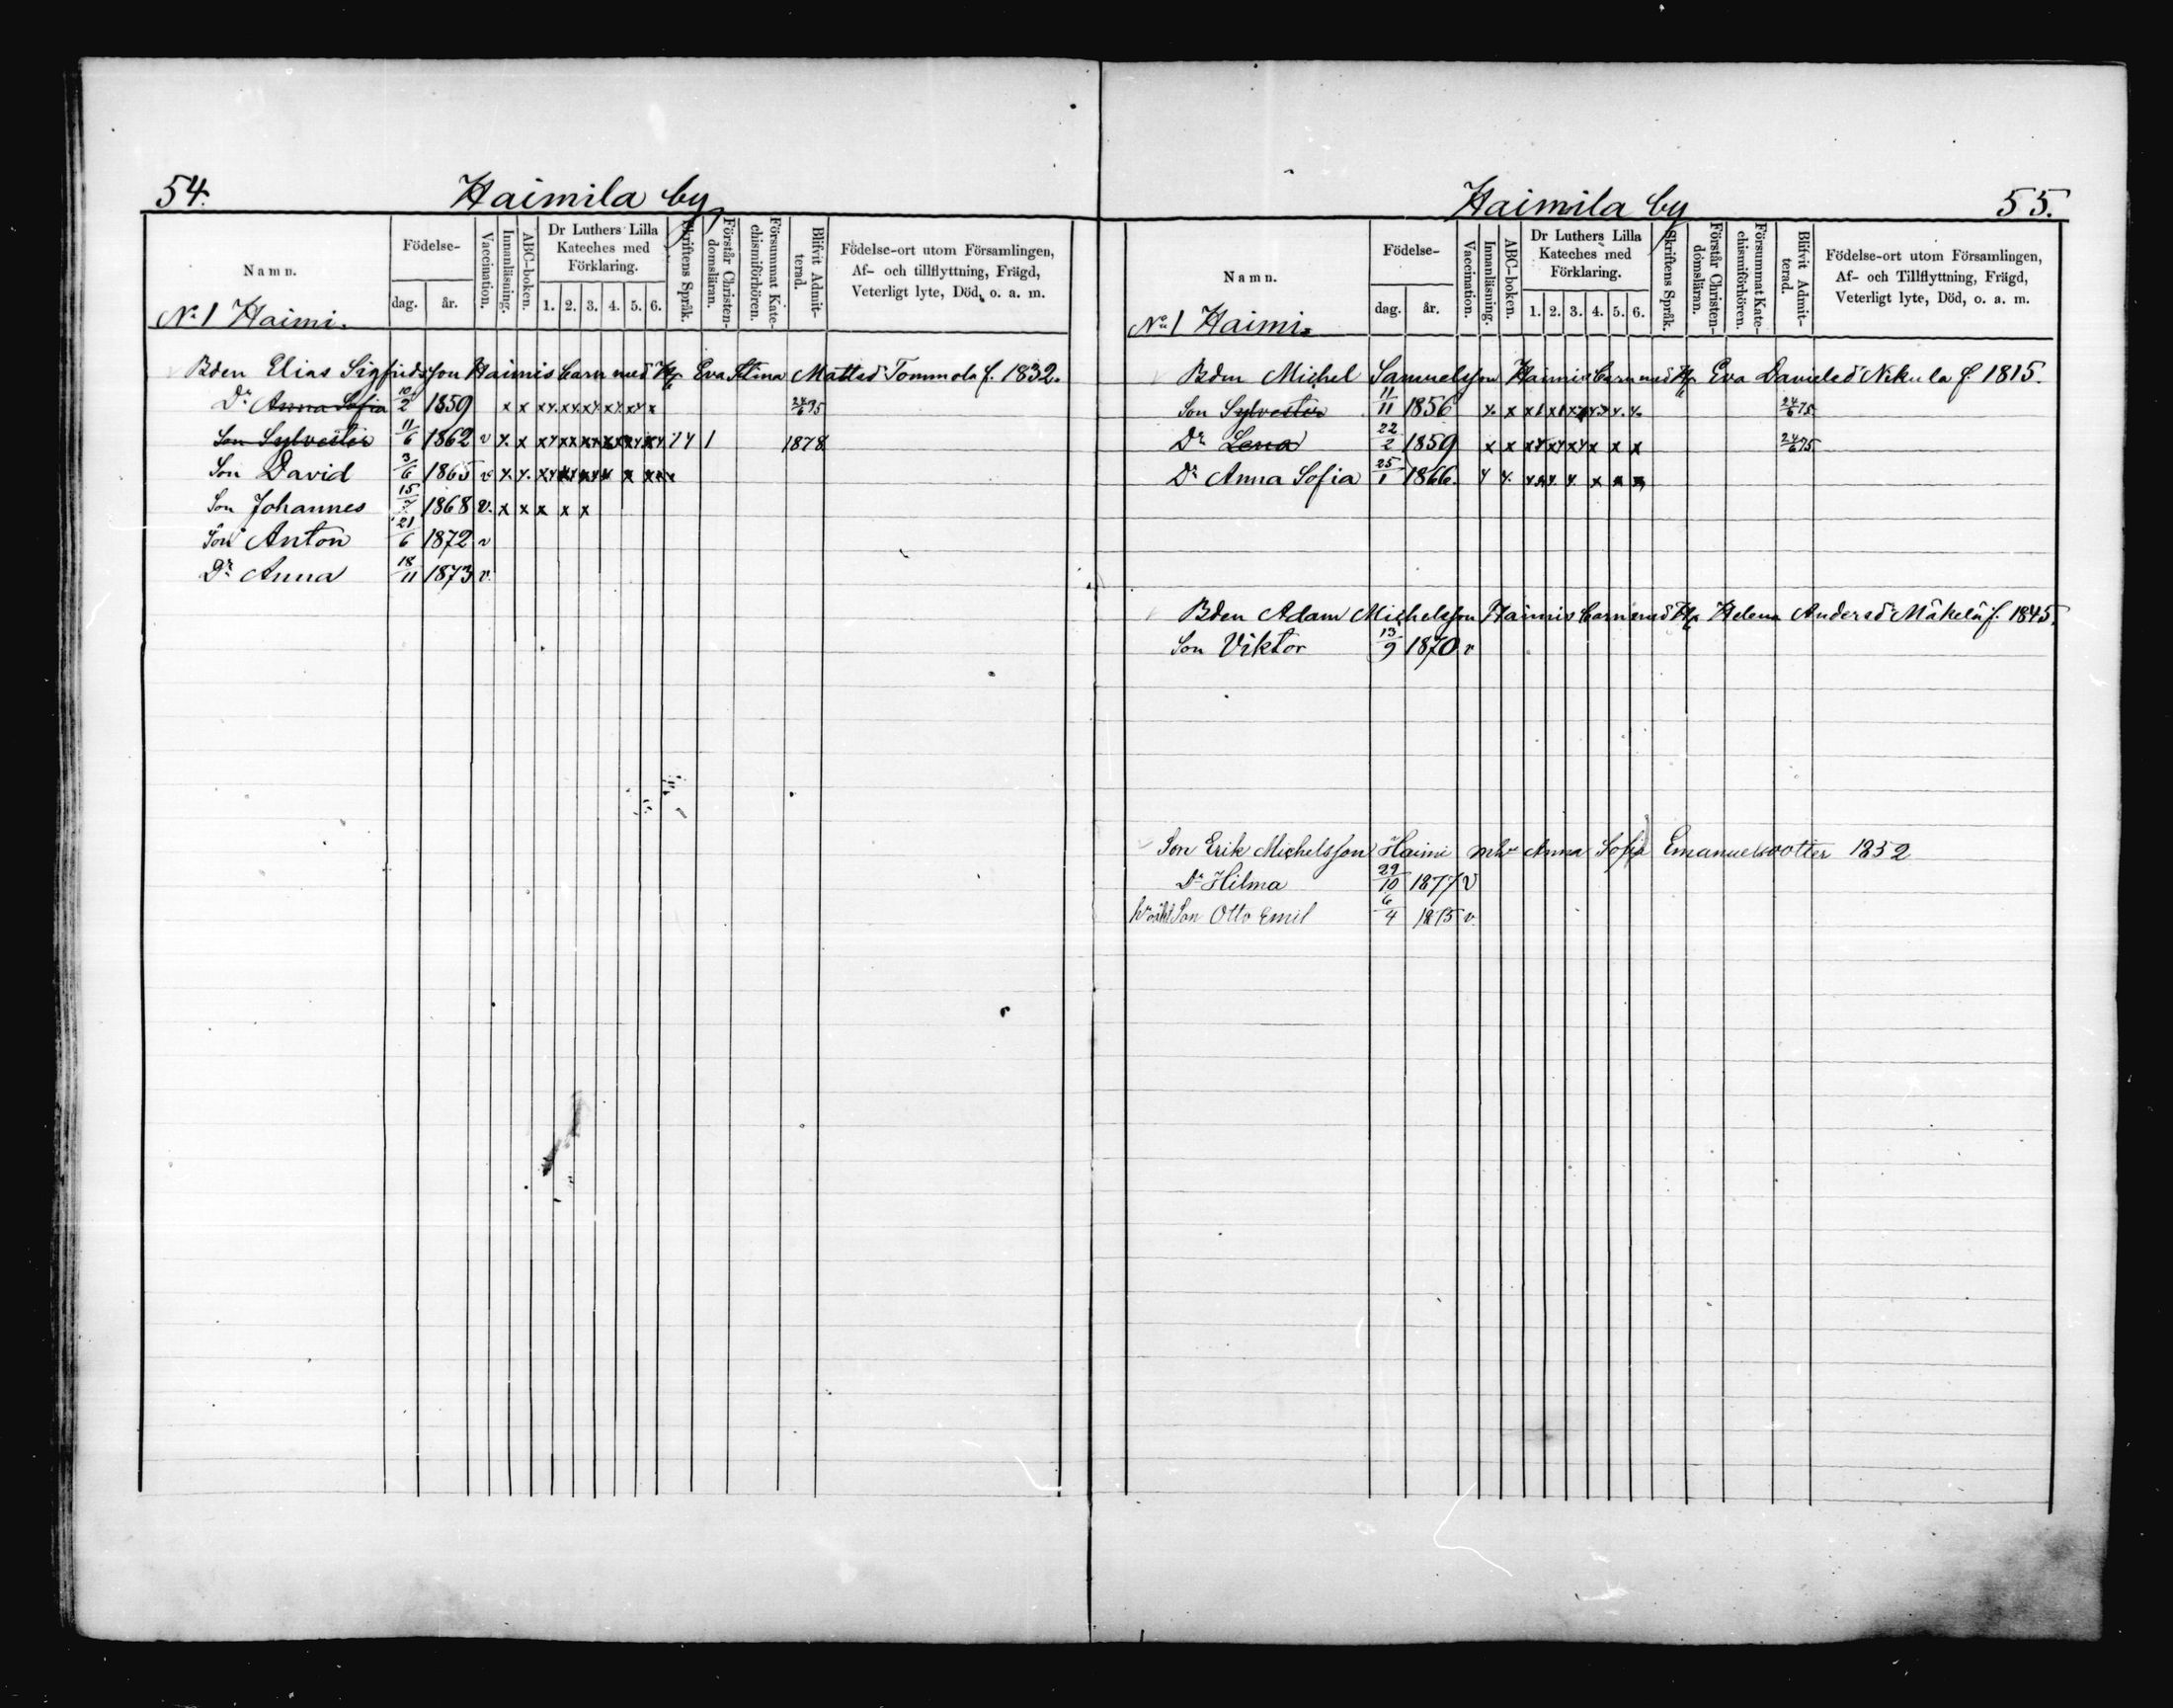 54.
Haimila by
Namn.
Födelse-
dag.
år.
Vaccination.
Innanläsning.
ABC-boken.
Dr Luthers Lilla
Kateches med
Förklaring.
1. 2. 3. 4. 5. 6.
Skriftens Språk.
Förstår Christen-
domsläran.
Försummat Kate-
chismiförhören.
Blifvit Admit-
terad.
Födelse-ort utom Församlingen,
Af- och tillflyttning, Frägd,
Veterligt lyte, Död, o. a. m.
No 1 Haimi.
Bden Elias Sigfridsson Haimis barn med Hu Eva Stina Mattsd Tommola f. 1832.
Dr Anna Sofia 10/2 1859 x x x4 x4 x4 x4 x4 x 24/6 75
Son Sylvester 11/6 1862 v 1878
Son David 3/6 1865 v
Son Johannes 15/7 1868 v. x x x x x
Son Anton 21/6 1872 v
Dr Anna 18/11 1873 v.
Haimila by
55.
Namn.
Födelse-
dag.
år.
Vaccination.
Innanläsning.
ABC-boken.
Dr Luthers Lilla
Kateches med
Förklaring.
1. 2. 3. 4. 5. 6.
Skriftens Språk.
Förstår Christen-
domsläran.
Försummat Kate-
chismiförhören.
Blifvit Admit-
terad.
Födelse-ort utom Församlingen,
Af- och Tillflyttning, Frägd,
Veterligt lyte, Död, o. a. m.
No 1 Haimi
Bden Michel Samuelsson Haimis barn med Hu Eva Davidsd Nikula f. 1815.
Son Sylvester 11/11 1856 24/6 75
Dr Lena 22/2 1859 x x x4 x4 x4 x x x 24/6 75
Dr Anna Sofia 25/1 1866.
Bden Adam Michelsson Haimis barn med Hu Helena Andersd Mäkelä f. 1845.
Son Viktor 13/9 1870 v
Son Erik Michelsson Haimi mhu Anna Sofia Emanuelsdotter 1852
Dr Hilma 29/10 1877 v
Son Otto Emil 6/4 1875 v.